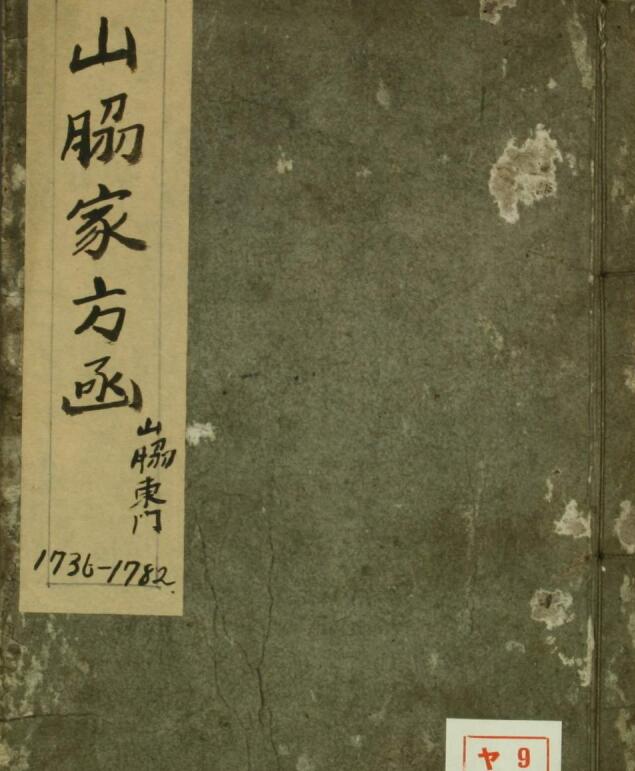 山脇家方函
山脇東門
1736-1782
ヤ9